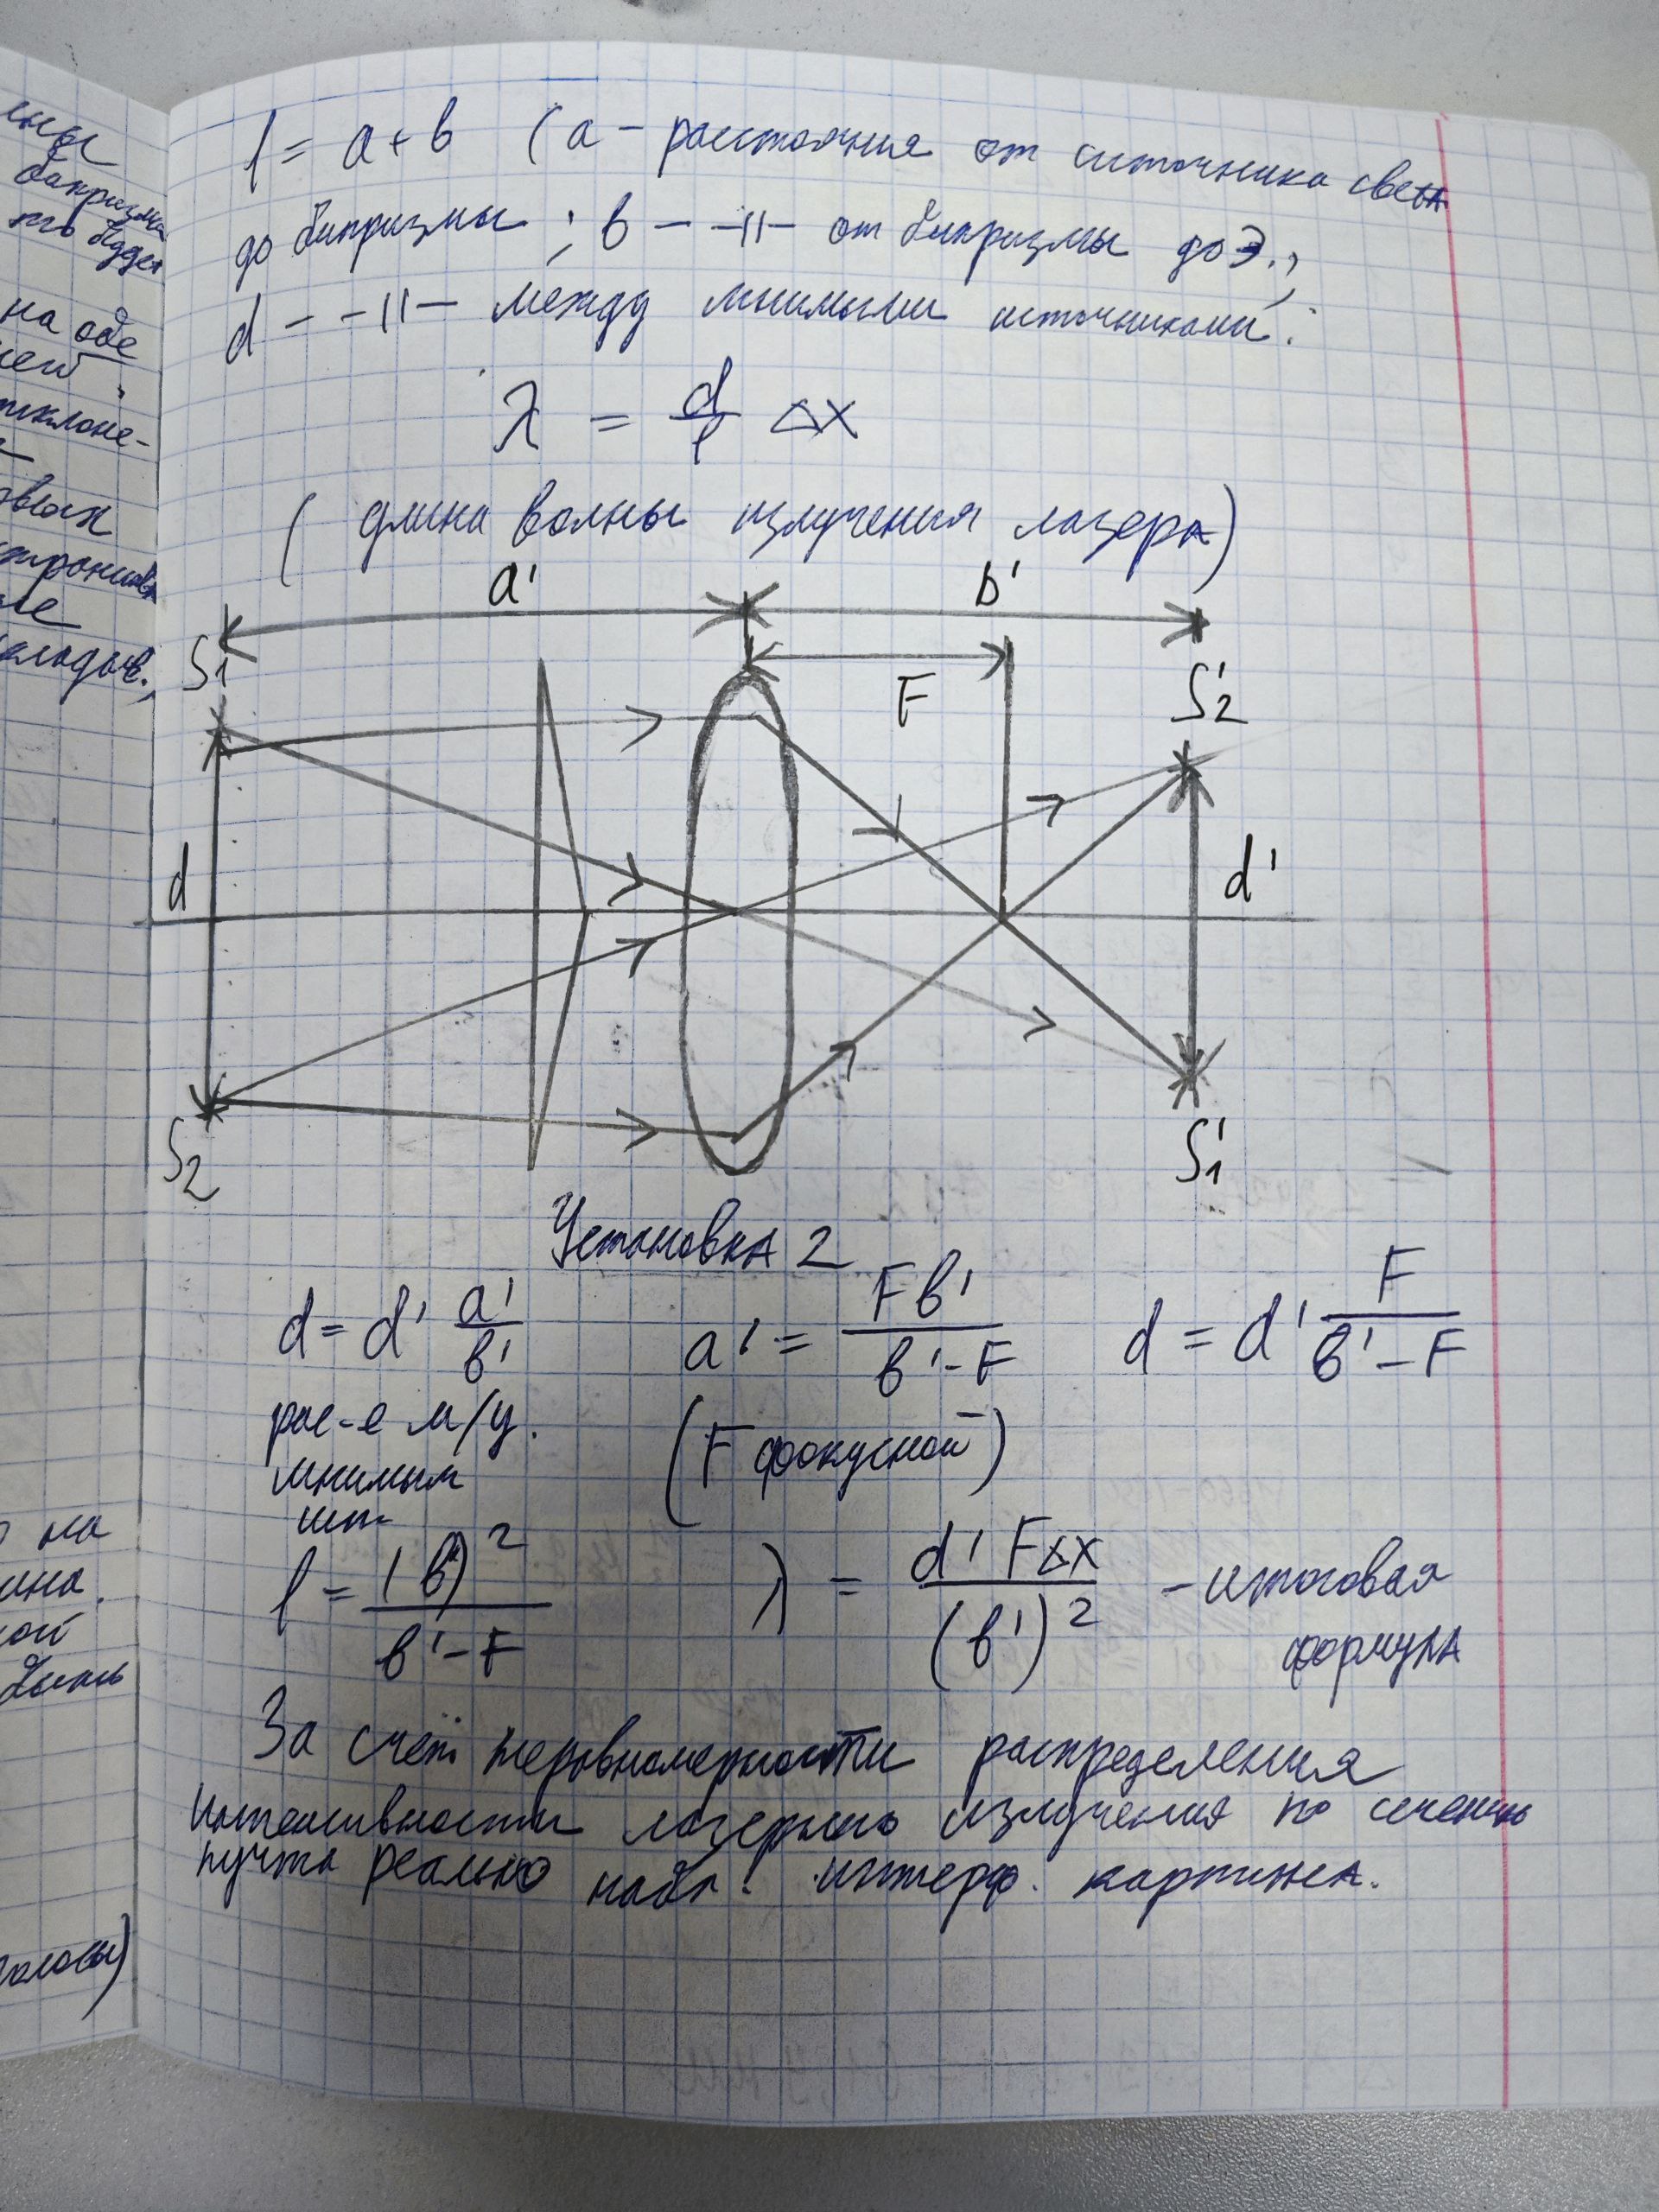 ины
бипризма
то будет
на обе
ней,
отклоне-
l = a + b (a - расстояния от источника света
до бипризмы ; b - -||- от бипризмы до Э.;
d - -||- между мнимыми источниками:
λ = d/l Δx
(длина волны излучения лазера)
a' b'
S1 F S'2
d d'
S2 S'1
Установка 2
d = d' a'/b' a' = Fb'/(b'-F) d = d' F/(b'-F)
рас-е м/у. (F фокусной)
мнимым
ист
l = (b')²/(b'-F) λ = d'FΔx/(b')² - итоговая
формула
За счёт неравномерности распределения
интенсивности лазерного излучения по сечению
пучка реально набл. интерф. картина.